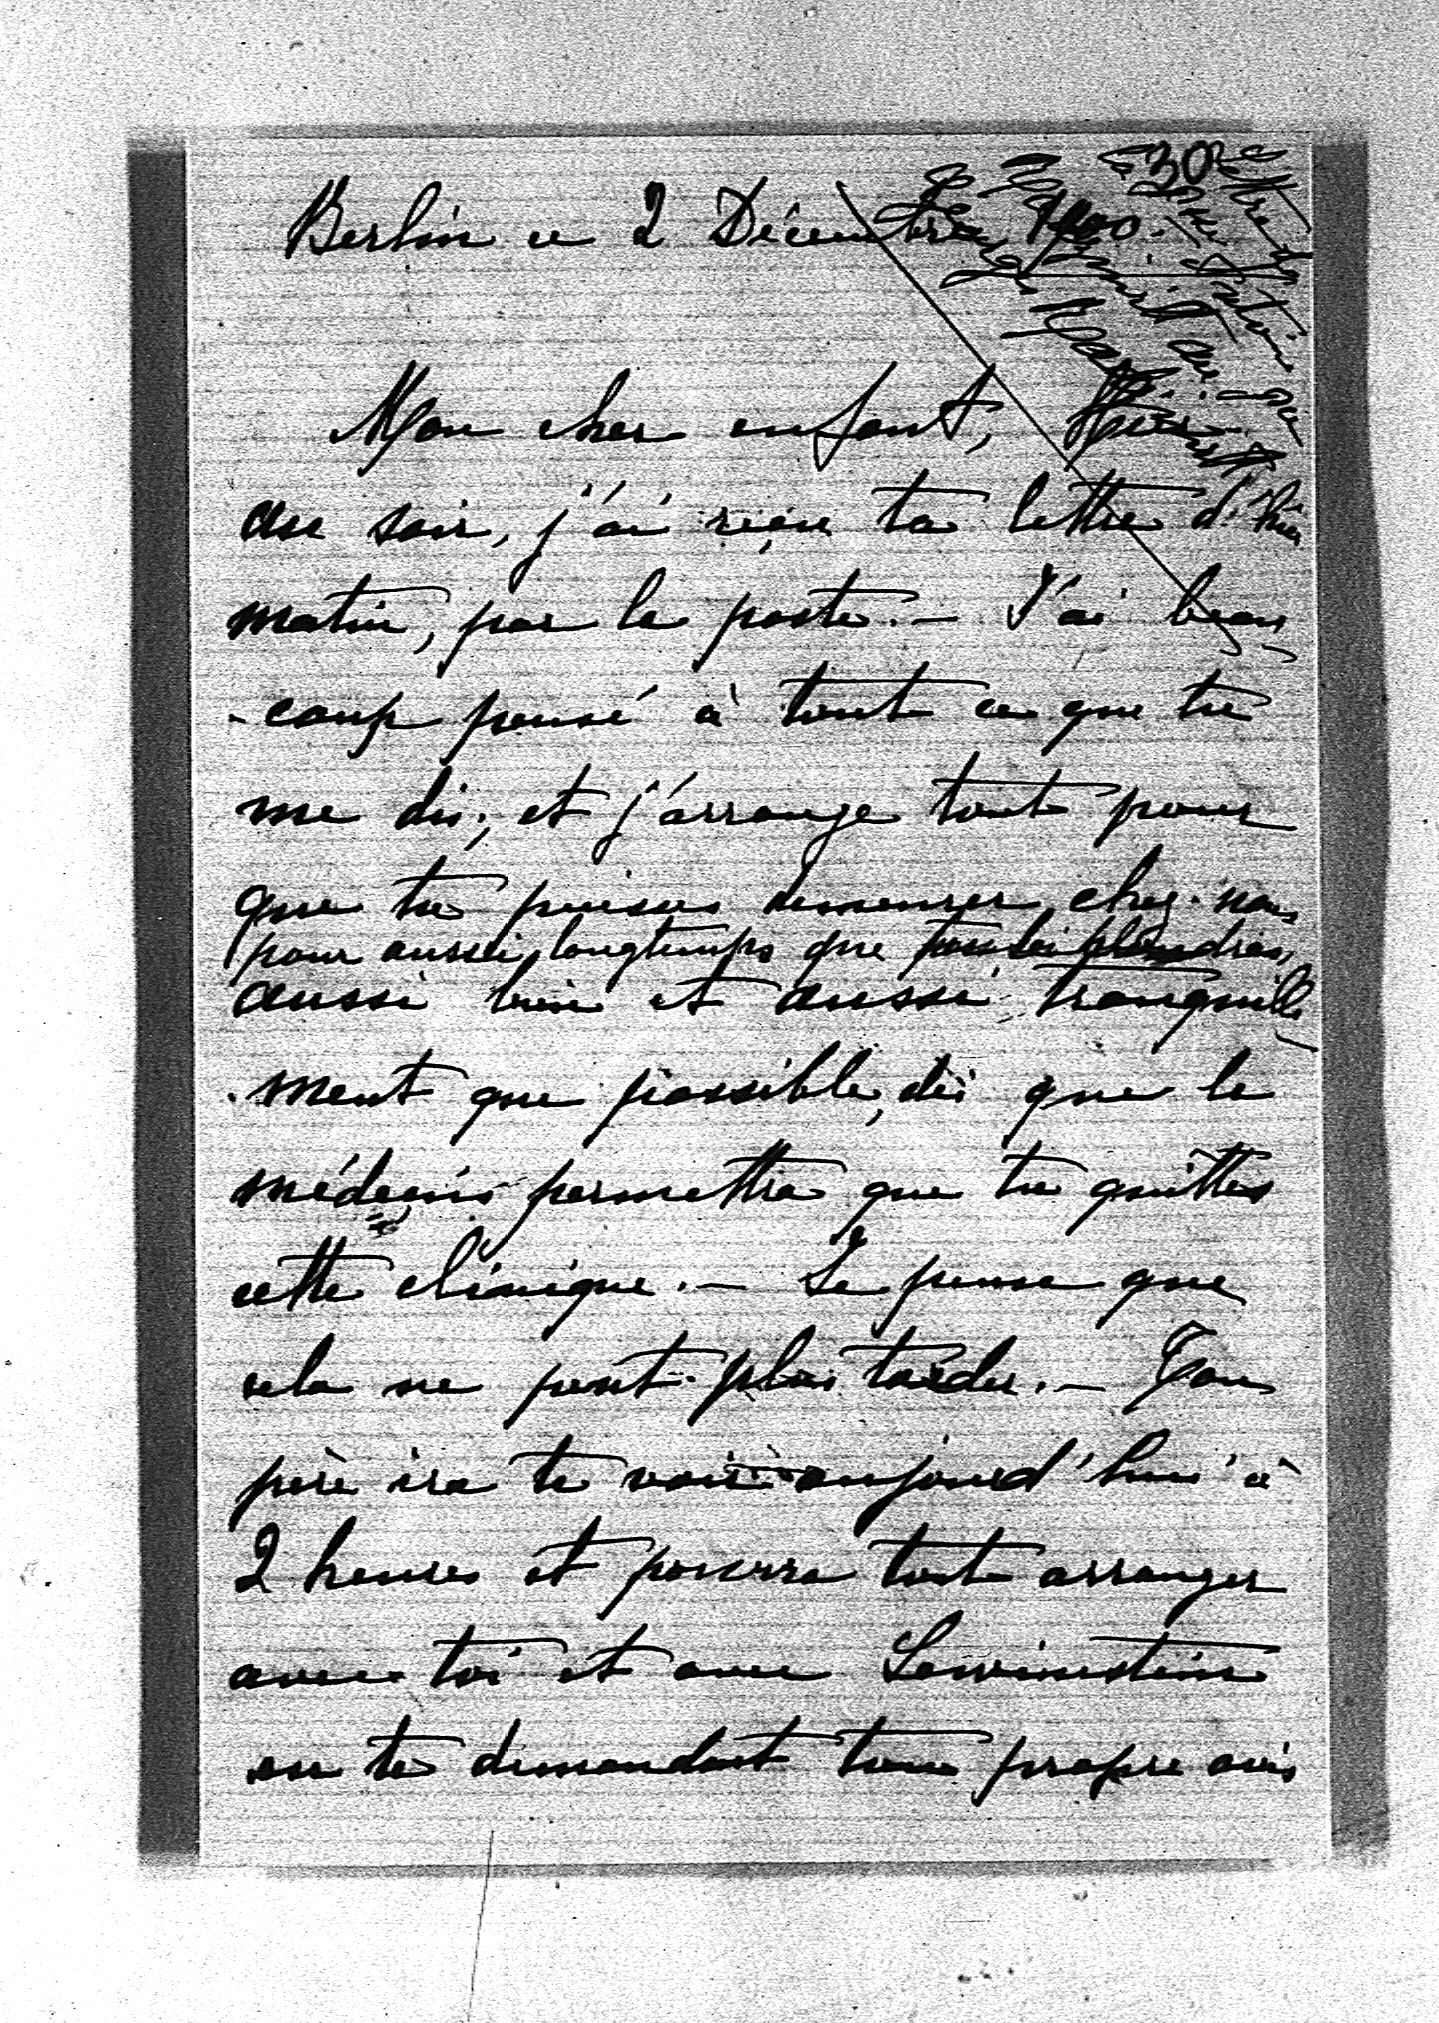 30
Berlin ce 2 Décembre 1900.
Mon cher enfant, Hier
au soir, j'ai reçu ta lettre d'hier
matin, par la poste. — J'ai beau
-coup pensé à tout ce que tu
me dis; et j'arrange tout pour
que tu puisses demeurer chez-nous
pour aussi longtemps que
aussi bien et aussi tranquille
-ment que possible, dès que le
médecin permettra que tu quittes
cette clinique. — Je pense que
cela ne peut plus tarder. — Ton
père ira te voir aujourd'hui à
2 heures et pourra tout arranger
avec toi et avec Lewinstein
en te demandant ton propre avis